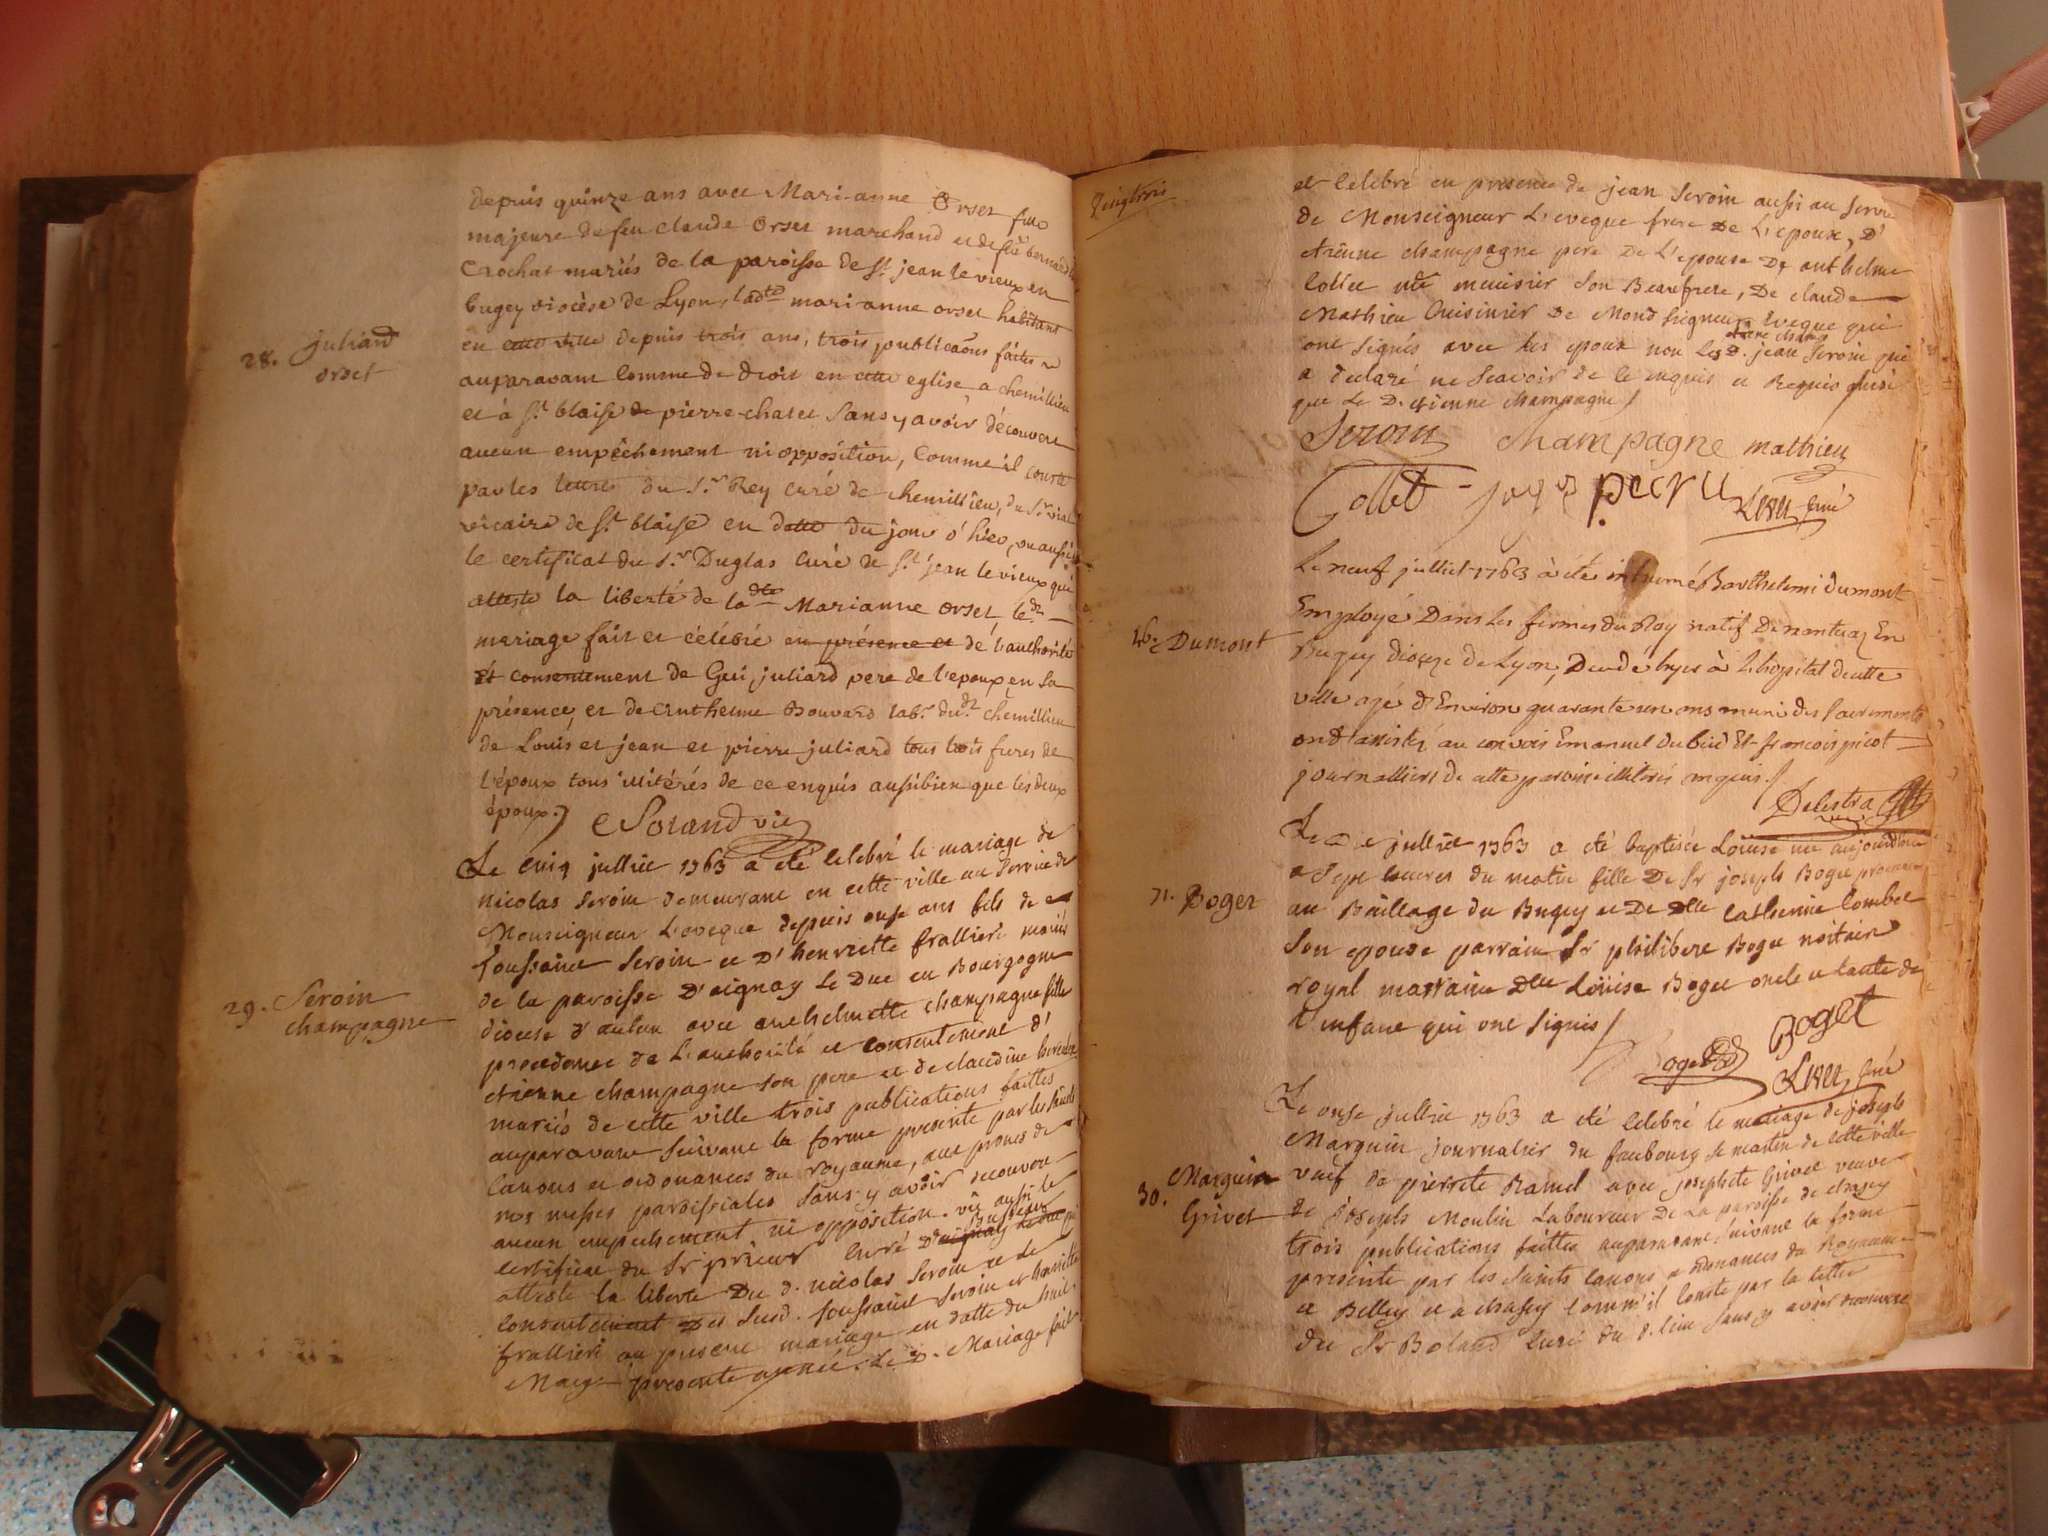 depuis quinze ans avec Mari-anne Orset fille
majeure de feu claude Orset marchand et de fue bernardine
Crochat mariés de la paroisse de St. jean le vieux en
bugey diocèse de Lyon, ladte mari-anne orset habitant
en cette ville depuis trois ans, trois publicãons faites
28. juliard
orset
auparavant comme de droit en cette eglise, a chemillieu
et à St. blaise de pierre-chatel sans y avoir découvert
aucun empêchement ni opposition, comme il conste
par les lettres du Sr. Rey curé de chemillieu, du Sr. vial
vicaire de St. blaise en datte du jour d'hier, vu aussi
le certificat du Sr. Duglas curé de St. jean le vieux qui
atteste la liberté de la dte Marianne orset, le dt
mariage fait et célébré en présence et de l'authorité
Et consentement de Gui juliard pere de l'epoux, en sa
présence, et de Anthelme Bouvard labr. dudt chemillieu
de Louis et jean et pierre juliard tous trois freres de
l'époux tous illitérés de ce enquis aussibien que les deux
époux./. Soland vic
Le cinq julliet 1763 a eté celebré le mariage de
nicolas Seroin demeurant en cette ville au service de
Monseigneur L'eveque depuis onse ans fils de
toussaint Seroin et D'henriette frallieri mariés
de la paroisse D'aignay Le Duc en Bourgogne
29. Seroin
champagne
diocese d'autun avec anthelmette champagne fille
procedente de L'authorité et consentement d'
etienne champagne son pere et de claudine
mariés de cette ville trois publications faittes
auparavant suivant la forme presente par les saints
canons et ordonances du royaume, aux prones de
nos messes paroissiales sans y avoir decouvert
aucun empechement ni opposition. vû aussi le
certificat du Sr prieur curé D'aignay le duc qui
atteste la liberté Du d. nicolas Seroin et le
consentement Des susd. toussaint Seroin et henriette
frallieri au present mariage en datte du huit
May presente année. Le D. Mariage fait
Vingttrois
et celebré en presence de jean Seroin aussi au service
de Monseigneur L'eveque frere De L'epoux, D'
etienne champagne pere De L'epouse De anthelme
collet mtre menisier son Beaufrere, De claude
Mathieu Cuisinier De Mond seigneur L'eveque qui
ont signés avec les epoux non Les d. jean Seroin qui
etiene champ
a declaré ne scavoir de ce enquis et Requis ainsi
que Le D. etienne champagne /
Seroin champagne mathieu
Collet
Curé
Le neuf julliet 1763 à été inhumé Barthelemi dumont
46. Dumont
Employé Dans les fermes du Roy natif De nantua En
Bugey diocese de Lyon, Decedé hyer à L'hopital de cette
ville agé d'Environ quarante un ans muni des sacrements
ont assisté au convois Emanuel dubié Et francois picot
journalliers de cette paroisse illiterés enquis./
Delestra
Le julliet 1763 a eté baptisée Löuise née aujourd'huy
71. Boget
a sept heures du matin fille De Sr joseph Boget procureur
au Baillage du Bugey et De Dlle Catherine Combet
son epouse parrain Sr philibert Boget nottaire
royal marraine Dlle Löuise Boget oncle et tante de
l'enfant qui ont signés /
Boget
Boget
Curé
Le onse julliet 1763 a eté celebré le mariage de joseph
Marguin journalier du faubourg St martin de cette ville
30. Marguin
Grivet
vuef de pierrette Ramel avec josephte Grivet veuve
de joseph Moulin Laboureur De La paroisse de chasey
trois publications faittes auparavant suivant la forme
presente par les saints canons et ordonances du Royaume
a Belley et a chasey comm'il conste par la lettre
du Sr Boland curé du d. lieu sans y avoir decouvert